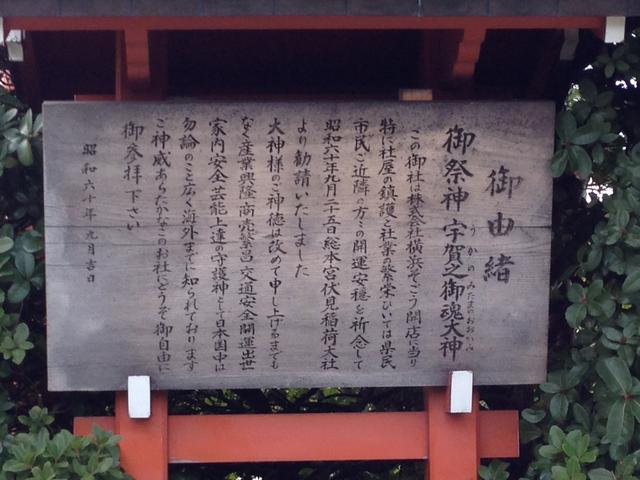 御由緒
御祭神 宇賀之御魂大神
うかのみたまのおおかみ
この御社は株式会社横浜そごう開店に当り
特に社屋の鎮護と社業の繁栄ひいては県民
市民ご近隣の方々の開運安穏を祈念して
昭和六十年九月二十五日総本宮伏見稲荷大社
より勧請いたしました
大神様のご神徳は改めて申し上げるまでも
なく産業興隆商売繁昌交通安全開運出世
家内安全芸能上達の守護神として日本国中は
勿論のこと広く海外までに知られております
ご神威あらたかなこのお社にどうぞ御自由に
御參拝下さい
昭和六十年九月吉日